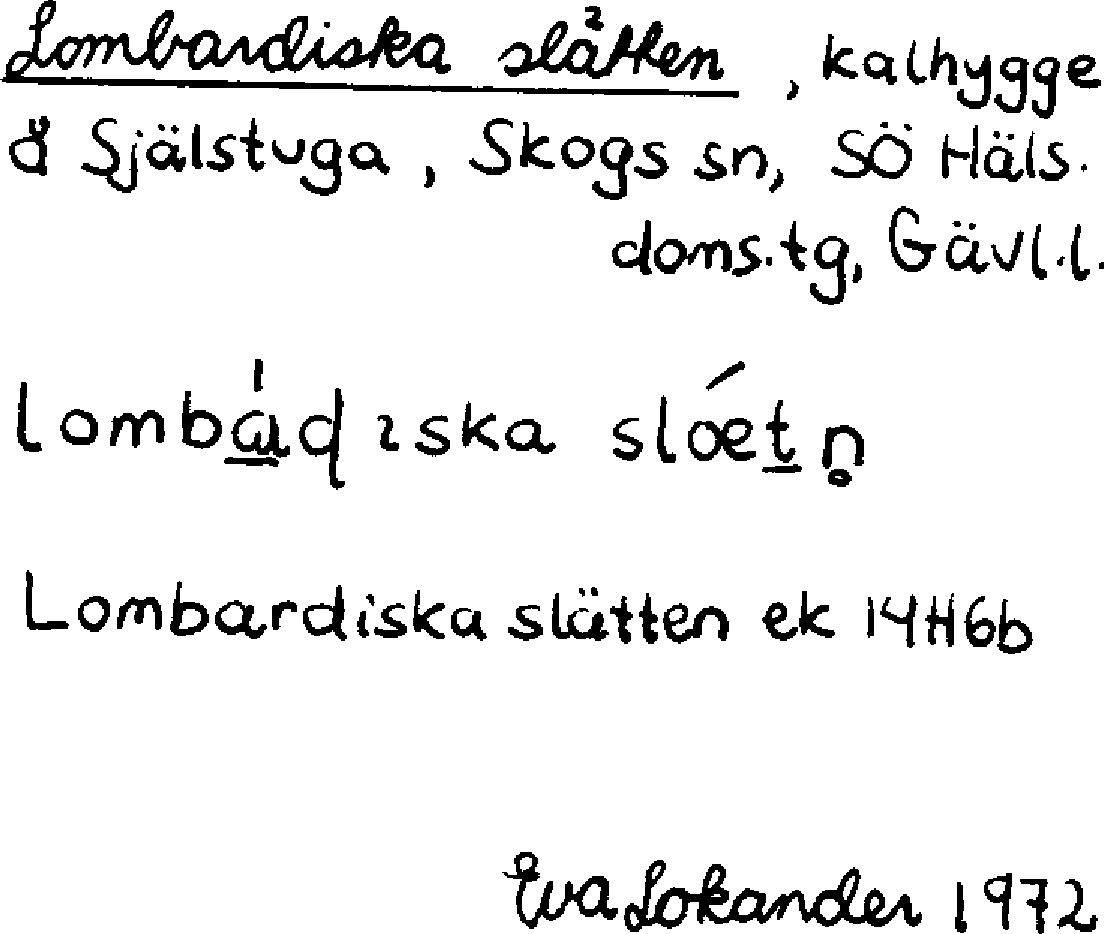 Lombardiska slätten, kalhygge
å Själstuga, Skogs sn, SÖ Häls.
doms.tg, Gävl.l.
lombádıska slǽtn̥
Lombardiska slätten ek 14H6b
Eva Lokander 1972